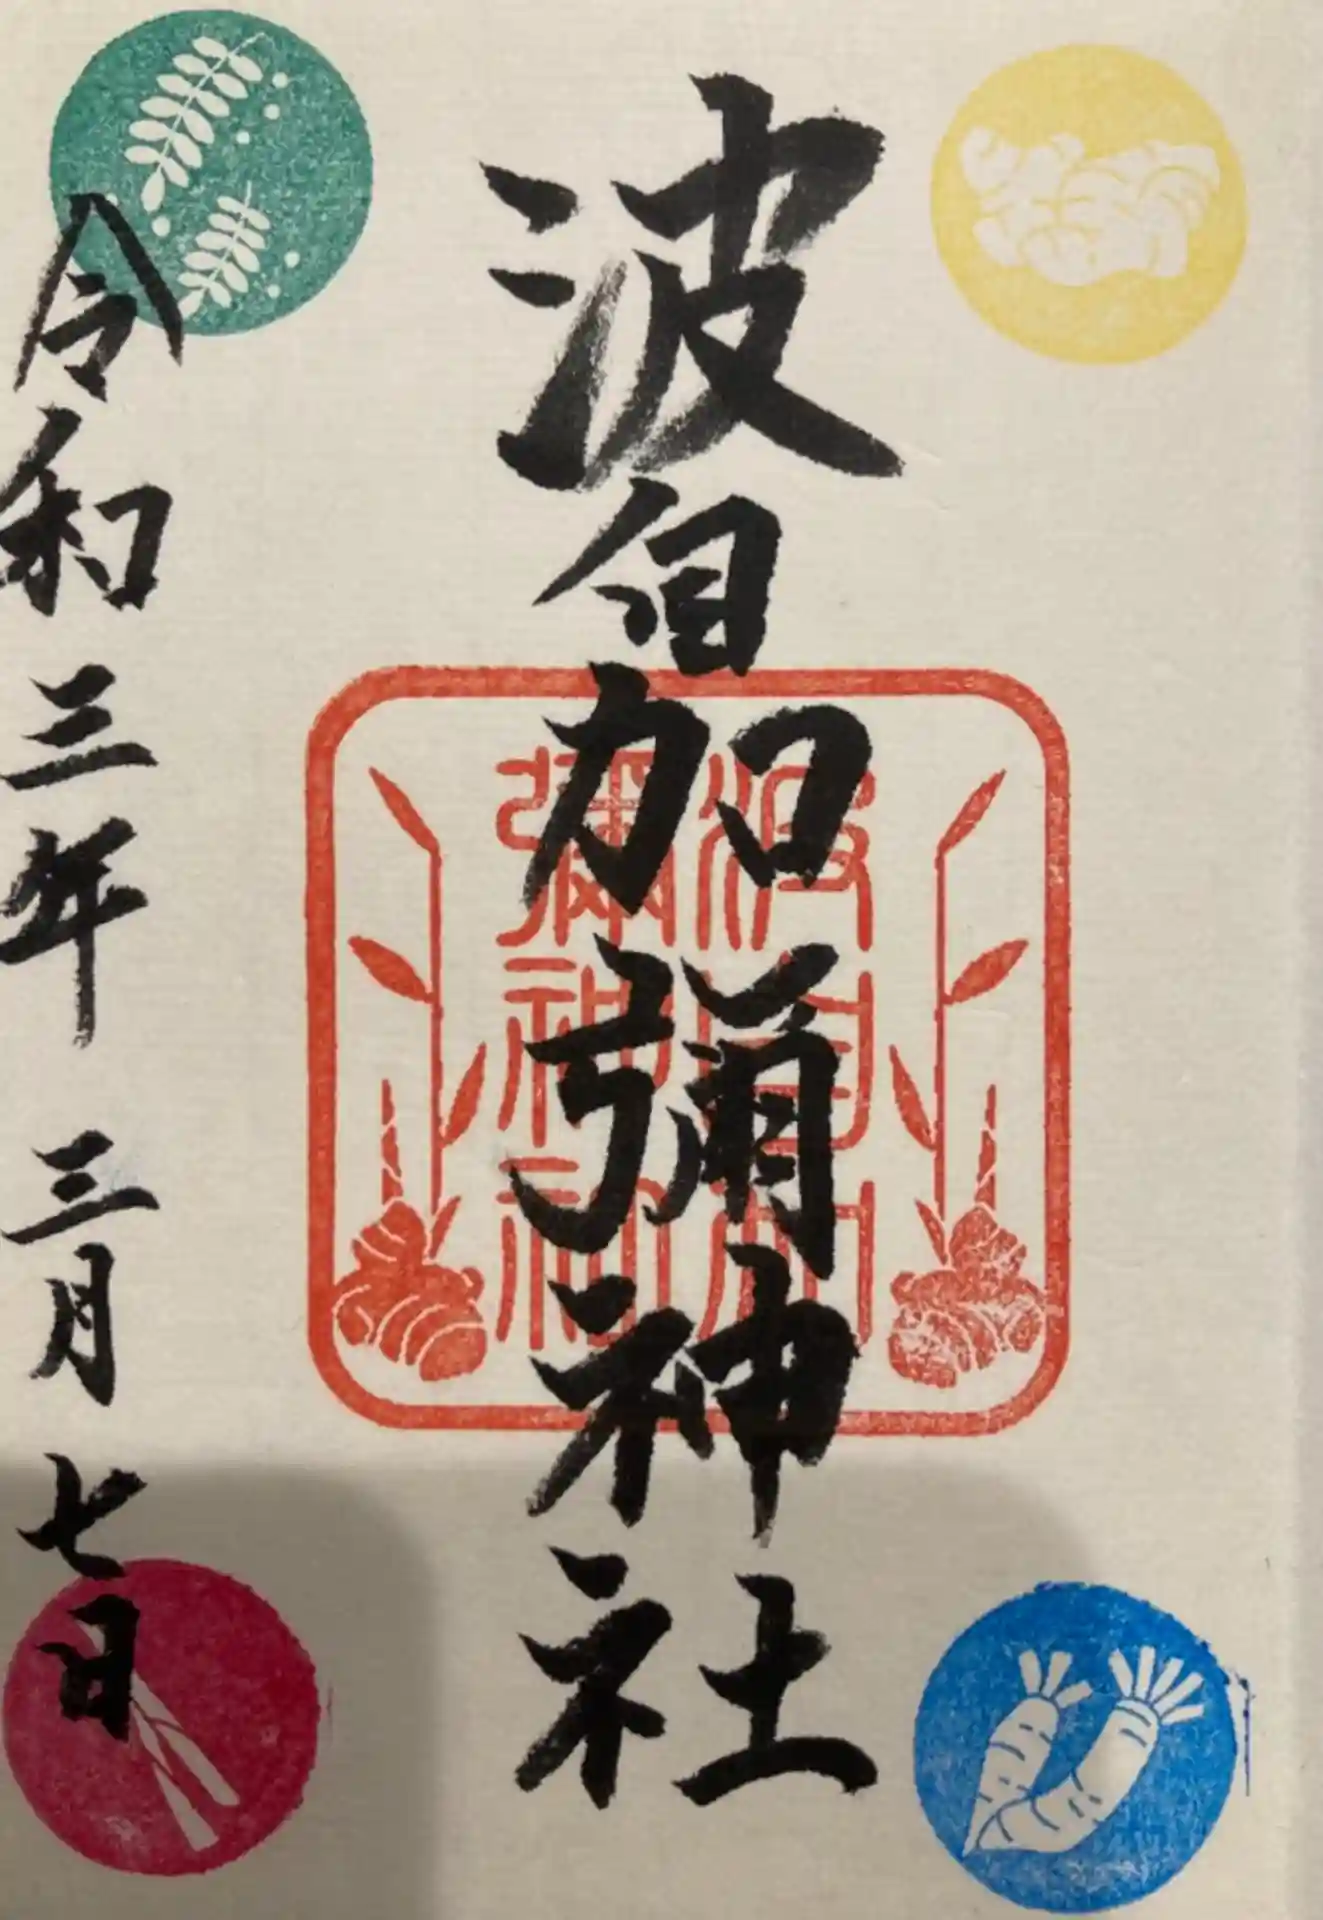 波自加彌神社
波自加
彌神社
令和三年 三月 七日